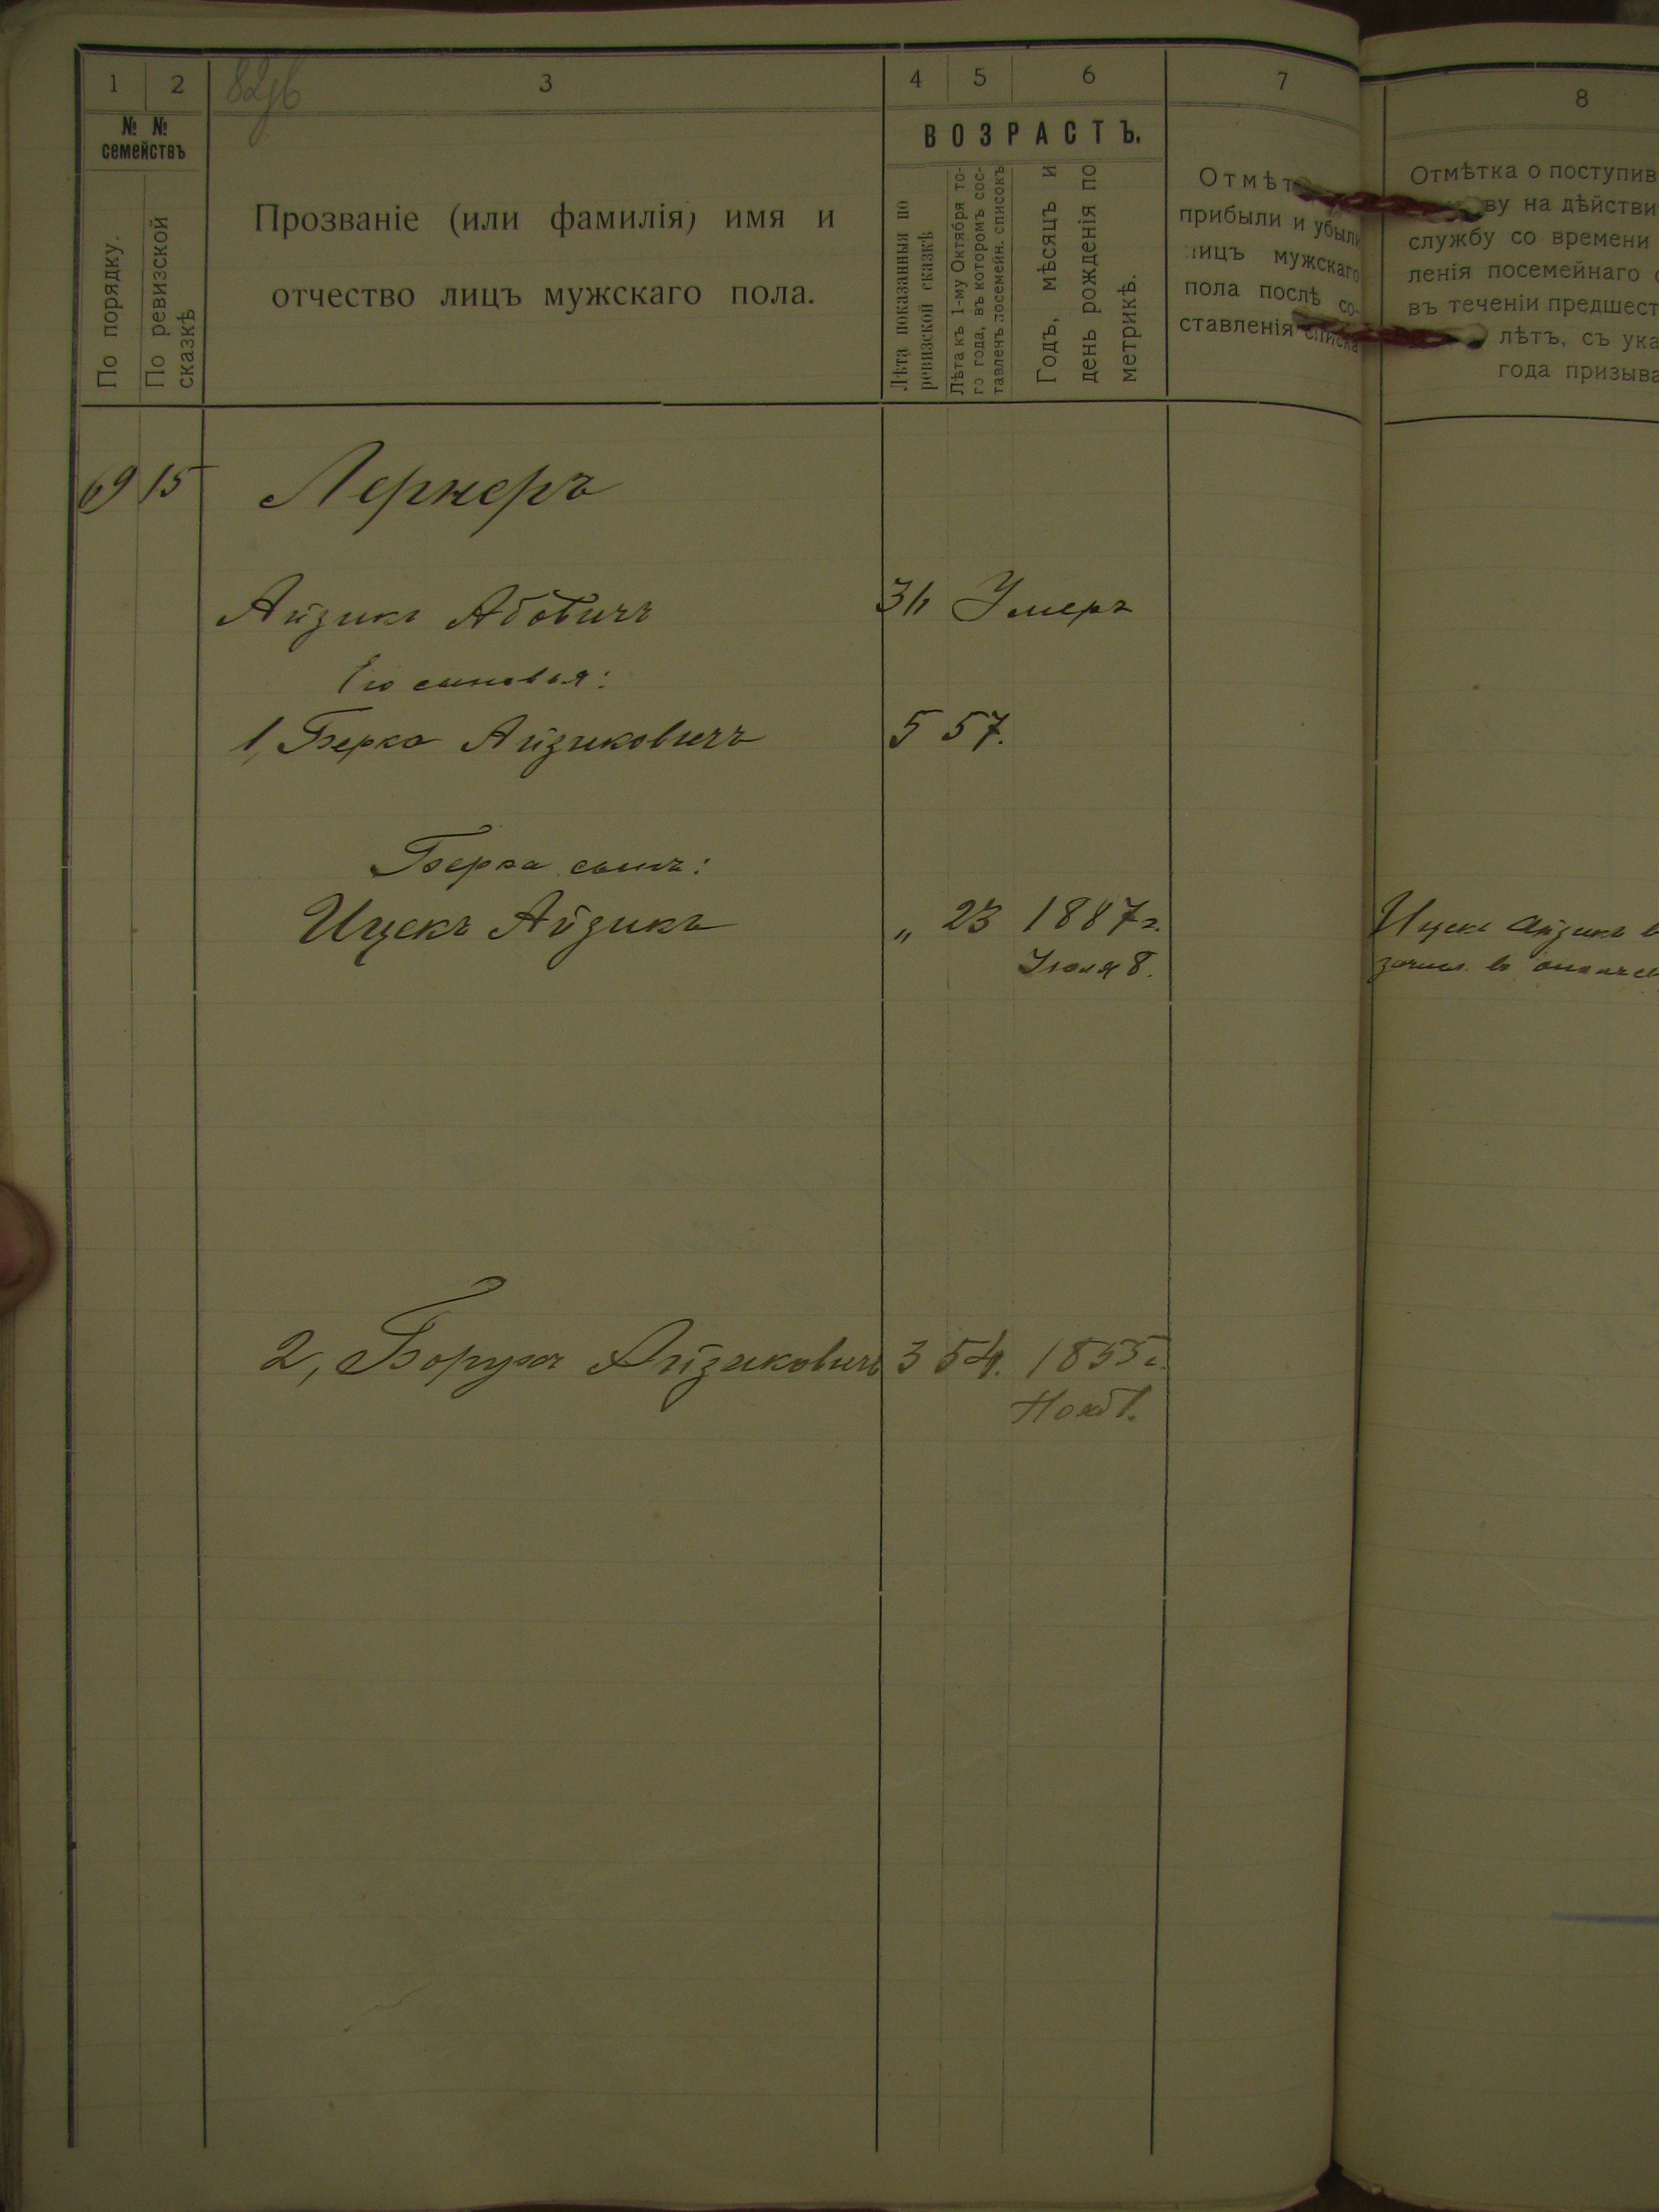 1 2 3 4 5 6 7 8
№ №
семействъ
По порядку.
По ревизской
сказкѣ
Прозваніе (или фамилія) имя и
отчество лицъ мужскаго пола.
ВОЗРАСТЪ.
Лѣта показанныя по
ревизской сказкѣ
Лѣта къ 1-му Октября то-
го года, въ которомъ сос-
тавленъ посемейн. списокъ
Годъ, мѣсяцъ и
день рожденія по
метрикѣ.
Отмѣт
прибыли и убыли
лицъ мужскаго
пола послѣ со-
ставленія списка
Отмѣтка о поступив
ву на дѣйстви
службу со времени
ленія посемейнаго
въ теченіи предшест
лѣтъ, съ ука
года призыва
69 15 Лернеръ
Айзикъ Абовичъ Умеръ
Его сыновья:
1, Берко Айзиковичъ 5 57.
Берка сынъ:
Ицекъ Айзикъ „ 23 1887 г. Ицекъ Айзикъ в
Іюля 8.
2, Борухъ Айзиковичъ 3 54. 1855 г.
Нояб 1.